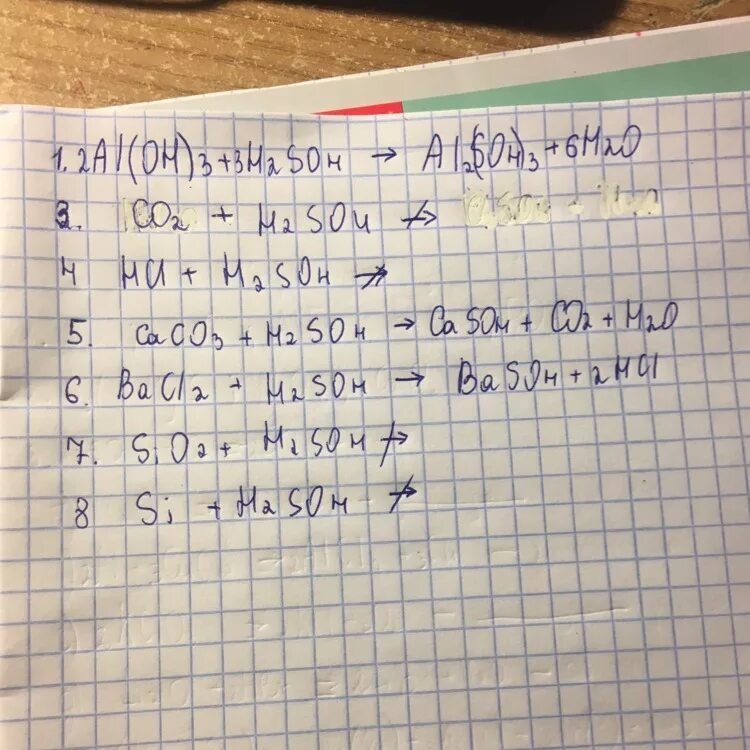 1. 2Al(OH)3 + 3H2SO4 → Al2(SO4)3 + 6H2O
3. CO2 + H2SO4 ↛
4 HCl + H2SO4 ↛
5. CaCO3 + H2SO4 → CaSO4 + CO2 + H2O
6. BaCl2 + H2SO4 → BaSO4 + 2HCl
7. SiO2 + H2SO4 ↛
8 Si + H2SO4 ↛